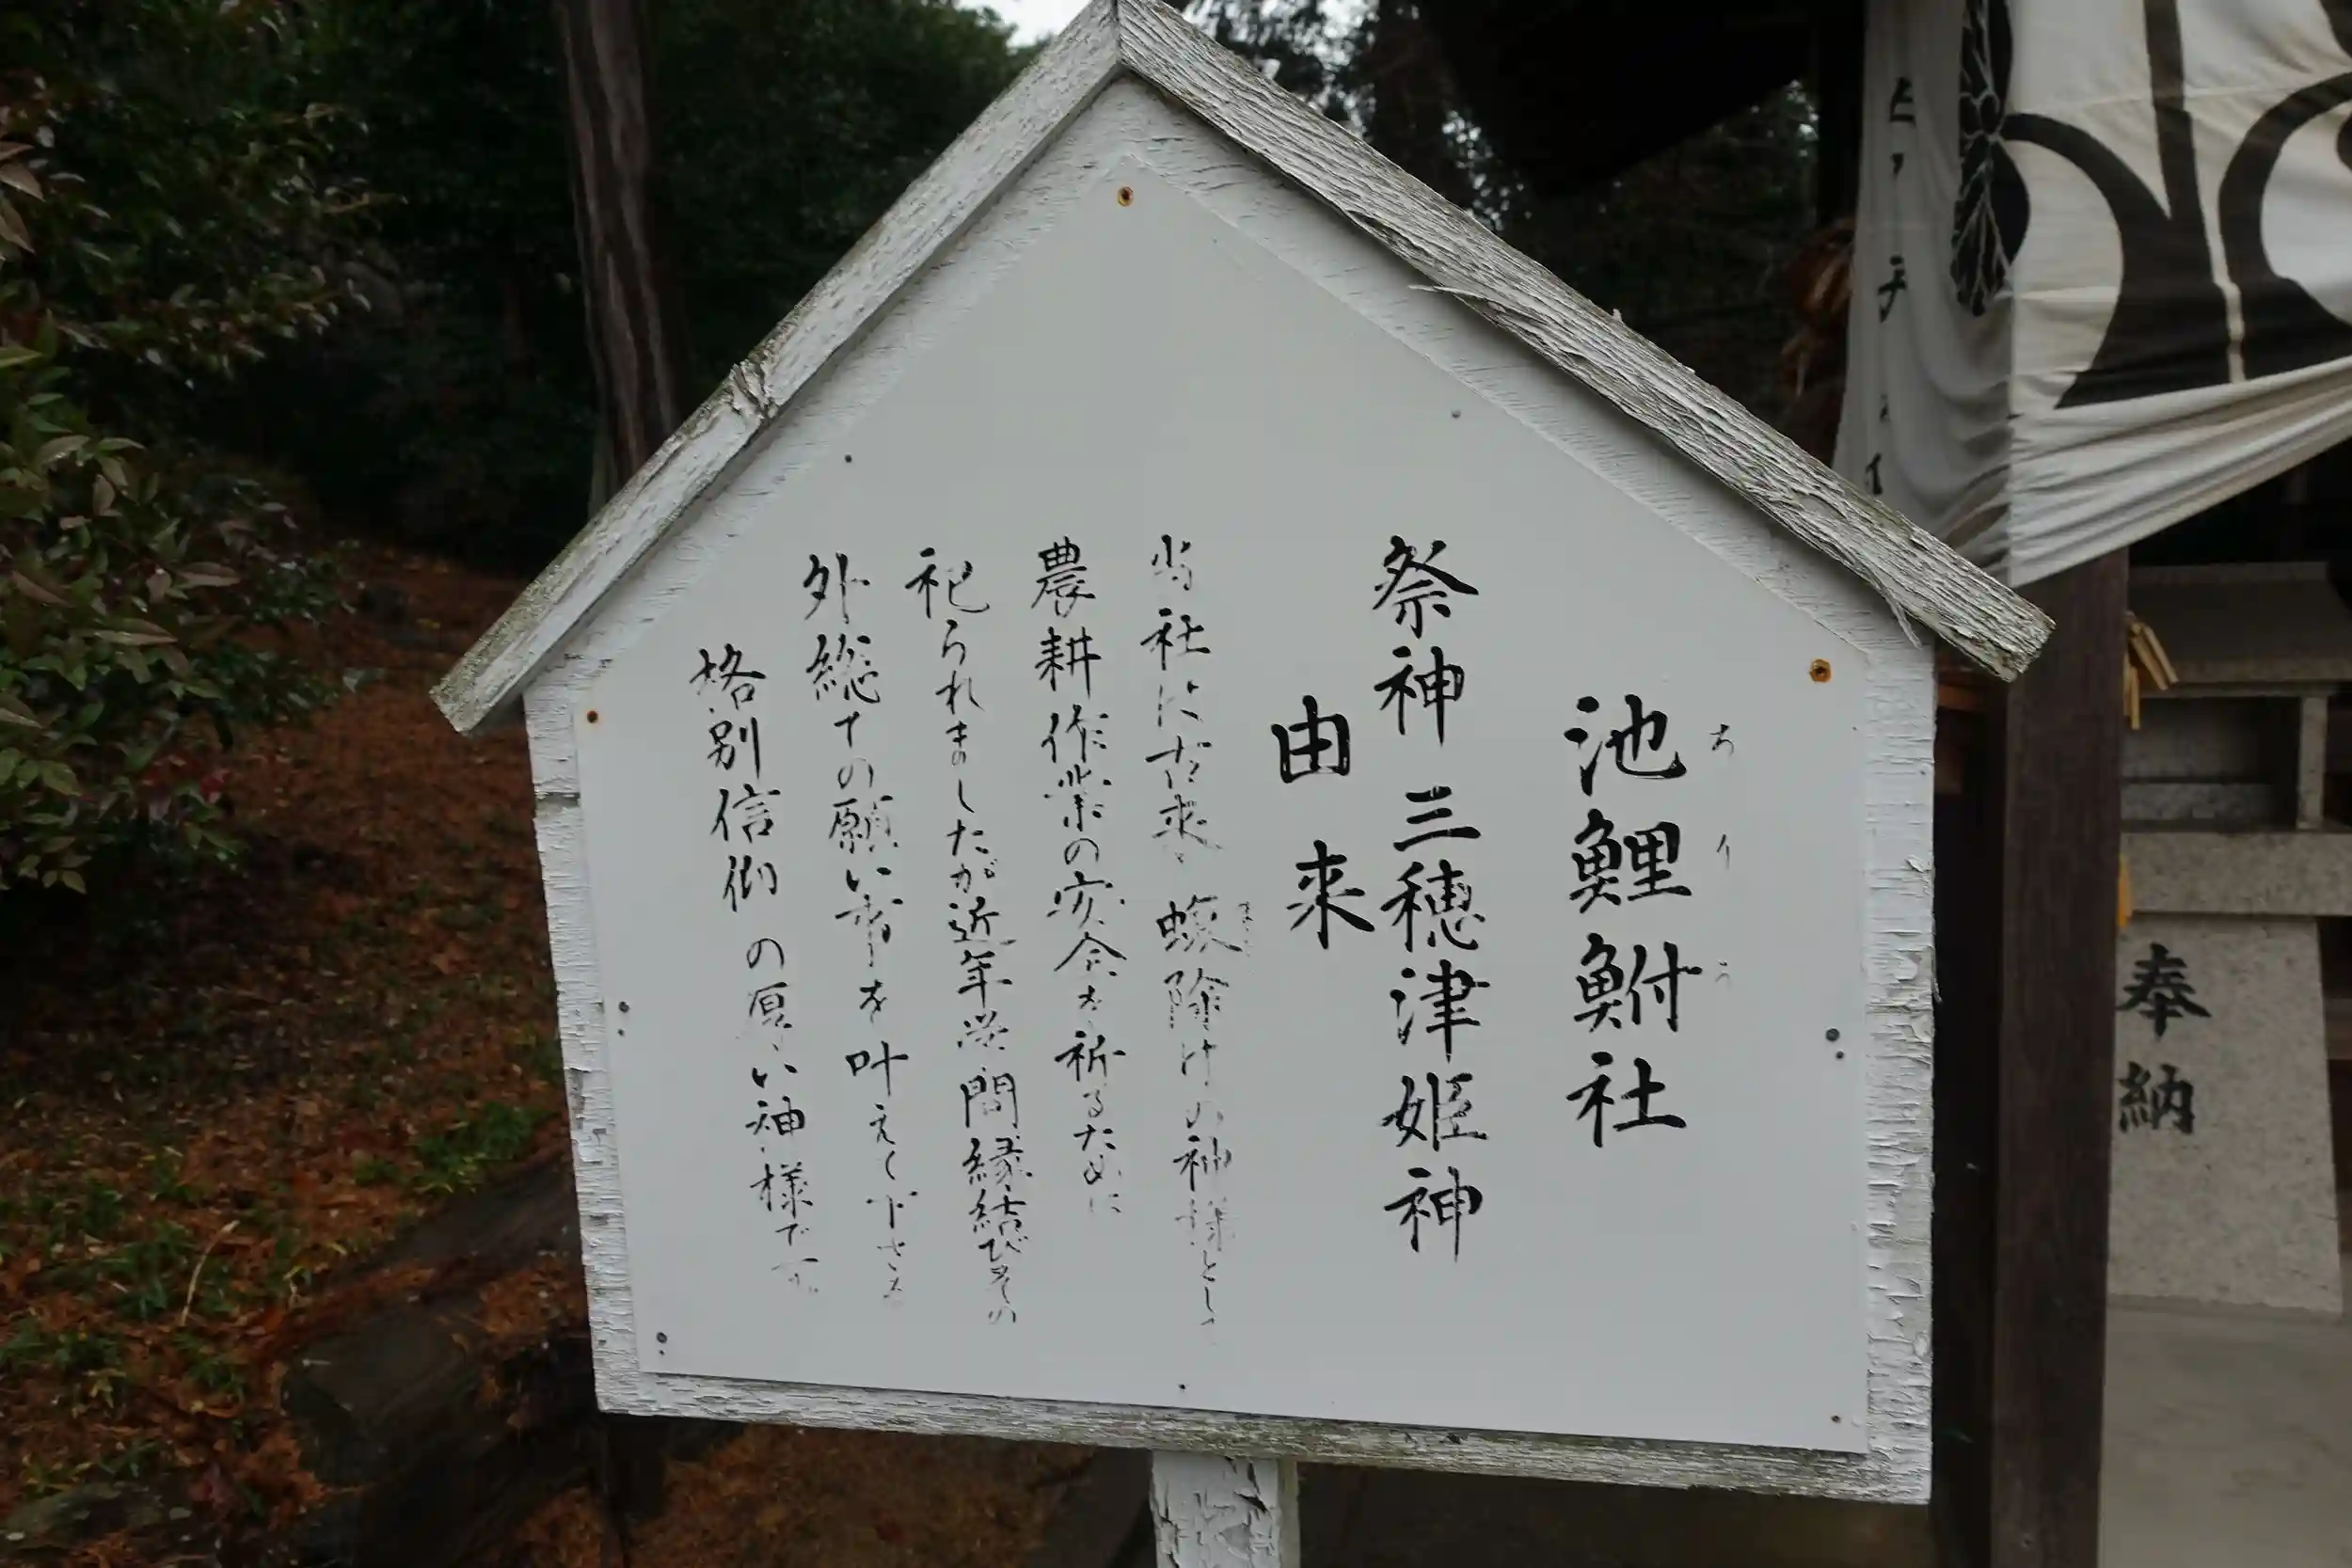 池鯉鮒社
ちりう
祭神 三穂津姫神
由来
当社は古来、蝮除けの神様として
農耕作業の安全を祈るために
祀られましたが近年学問縁結びその
外総ての願い事を叶えて下さる
格別信仰の厚い神様です
奉納